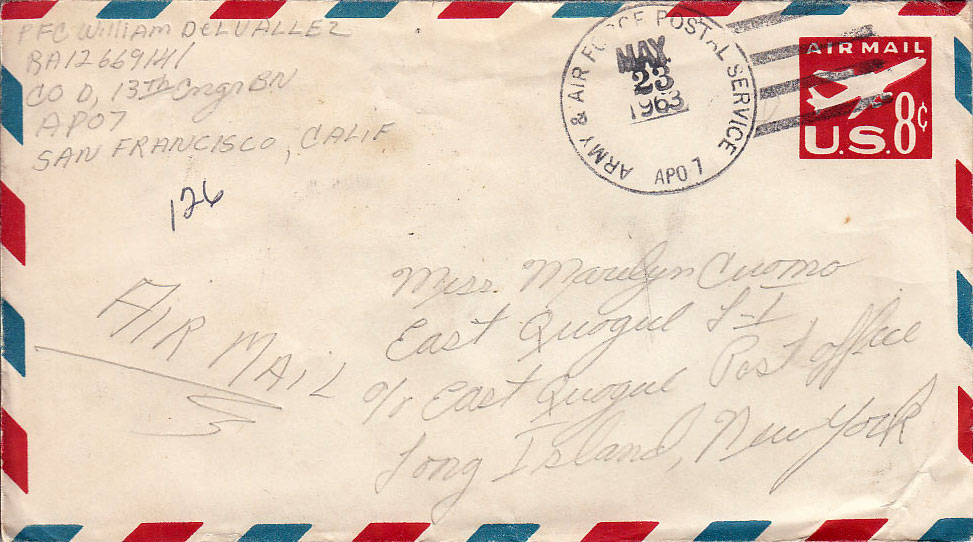 PFC William DelVallez
RA12669141
CO D, 13TH Engr BN
APO7
SAN FRANCISCO, CALIF.
126
ARMY & AIR FORCE POSTAL SERVICE
MAY
23
1963
APO 7
AIR MAIL
U.S. 8¢
AIR MAIL
Miss. Marilyn Cuomo
East Quogue L-I
c/o East Quogue Post office
Long Island, New York